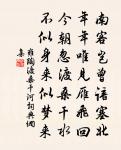 南客岂曾谙塞北
年年唯见雁飞回
今朝忽渡桑干水
不似身来似梦来
雍陶渡桑干河词典网
集